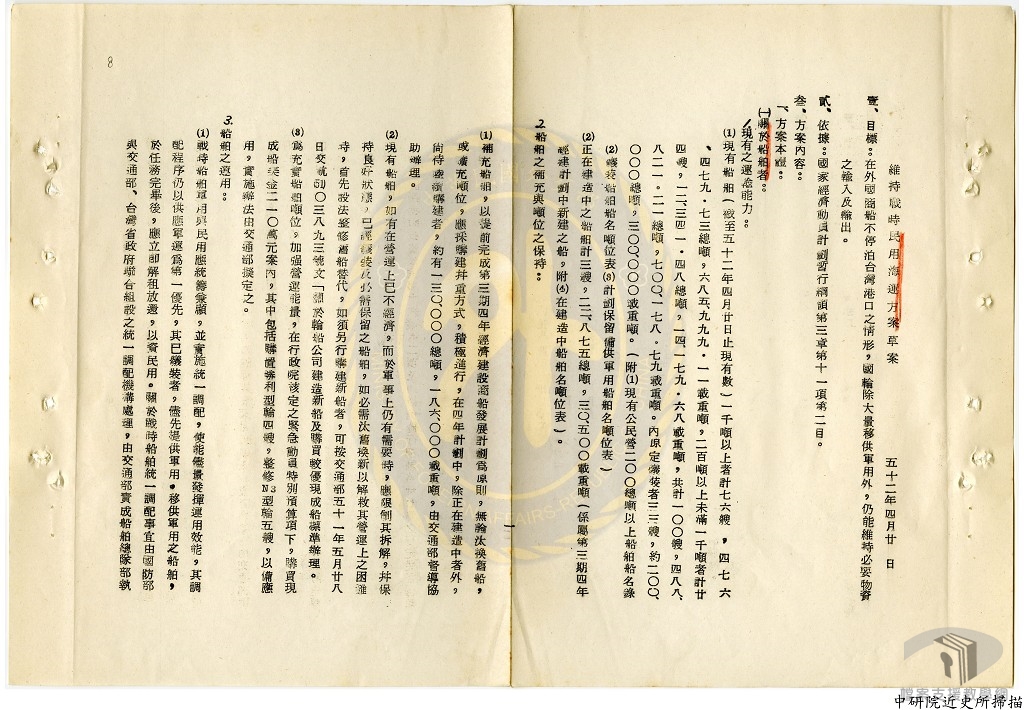 維持戰時民用海運方案草案
五十二年四月廿　日
壹、目標：在外國商船不停泊台灣港口之情形，國輪除大量移供軍用外，仍能維持必要物資
之輸入及輸出。
貳、依據：國家經濟動員計劃暫行綱領第三章第十一項第二目。
叁、方案內容：
一、方案本題：
㈠關於船舶者：
1.現有之運念能力：
(1)現有船舶（截至五十二年四月廿日止現有數）一千噸以上者計七六艘，四七六
、四七九・七三總噸，六八五、九九九・一一載重噸，二百噸以上未滿一千噸者計廿
四艘，一二、三四一・四八總噸，一四、一七九・六八載重噸，共計一〇〇艘，四八八、
八二一・二一總噸，七〇〇、一七八・七九載重噸。內原定儎裝者三三艘，約二〇〇、
〇〇〇總噸，三〇〇、〇〇〇載重噸。（附(1)現有公民營二〇〇總噸以上船舶船名錄
(2)儎裝船舶名噸位表(3)計劃保留備供軍用船舶名噸位表）
(2)正在建造中之船舶計三艘，二二、八七五總噸，三〇、五〇〇載重噸（係屬第三期四年
經建計劃中新建之船，附(4)在建造中船舶名噸位表）。
2.船舶之補充與噸位之保持：
(1)補充船舶，以提前完成第三期四年經濟建設商船發展計劃為原則，無論汰換舊船，
或擴充噸位，應採購建并重方式，積極進行，在四年計劃中，除正在建造中者外，
尚待繼續購建者，約有一三〇、〇〇〇總噸，一八六、〇〇〇載重噸，由交通部督導協
助辦理。
(2)現有船舶，如有在營運上已不經濟，而於軍事上仍有需要時，應限制其拆解，并保
持良好狀態，已經儎裝及必需保留之船舶，如必需汰舊換新以解救其營運上之困難
時，首先設法整修舊船替代，如須另行購建新船者，可按交通部五十一年五月廿八
日交航51〇三八九三號文「關於輪船公司建造新船及購買較優現成船標準辦理。
(3)為充實船舶噸位，加強營運能量，在行政院核定之緊急動員特別預算項下，購買現
成船美金二一〇萬元案內，其中包括購置勝利型輪四艘，整修N3型輪五艘，以備應
用，實施辦法由交通部擬定之。
3.船舶之適用：
(1)戰時船舶軍用與民用應統籌兼顧，並實施統一調配，使能儘量發揮運用效能，其調
配程序仍以供應軍運為第一優先，其已儎裝者，儘先提供軍用。移供軍用之船舶，
於任務完畢後，應立即解租放還，以資民用。關於戰時船舶統一調配事宜由國防部
與交通部、台灣省政府聯合組設之統一調配機構處理，由交通部責成船舶總隊部執
一
8
檔案支援教學網
中研院近史所掃描